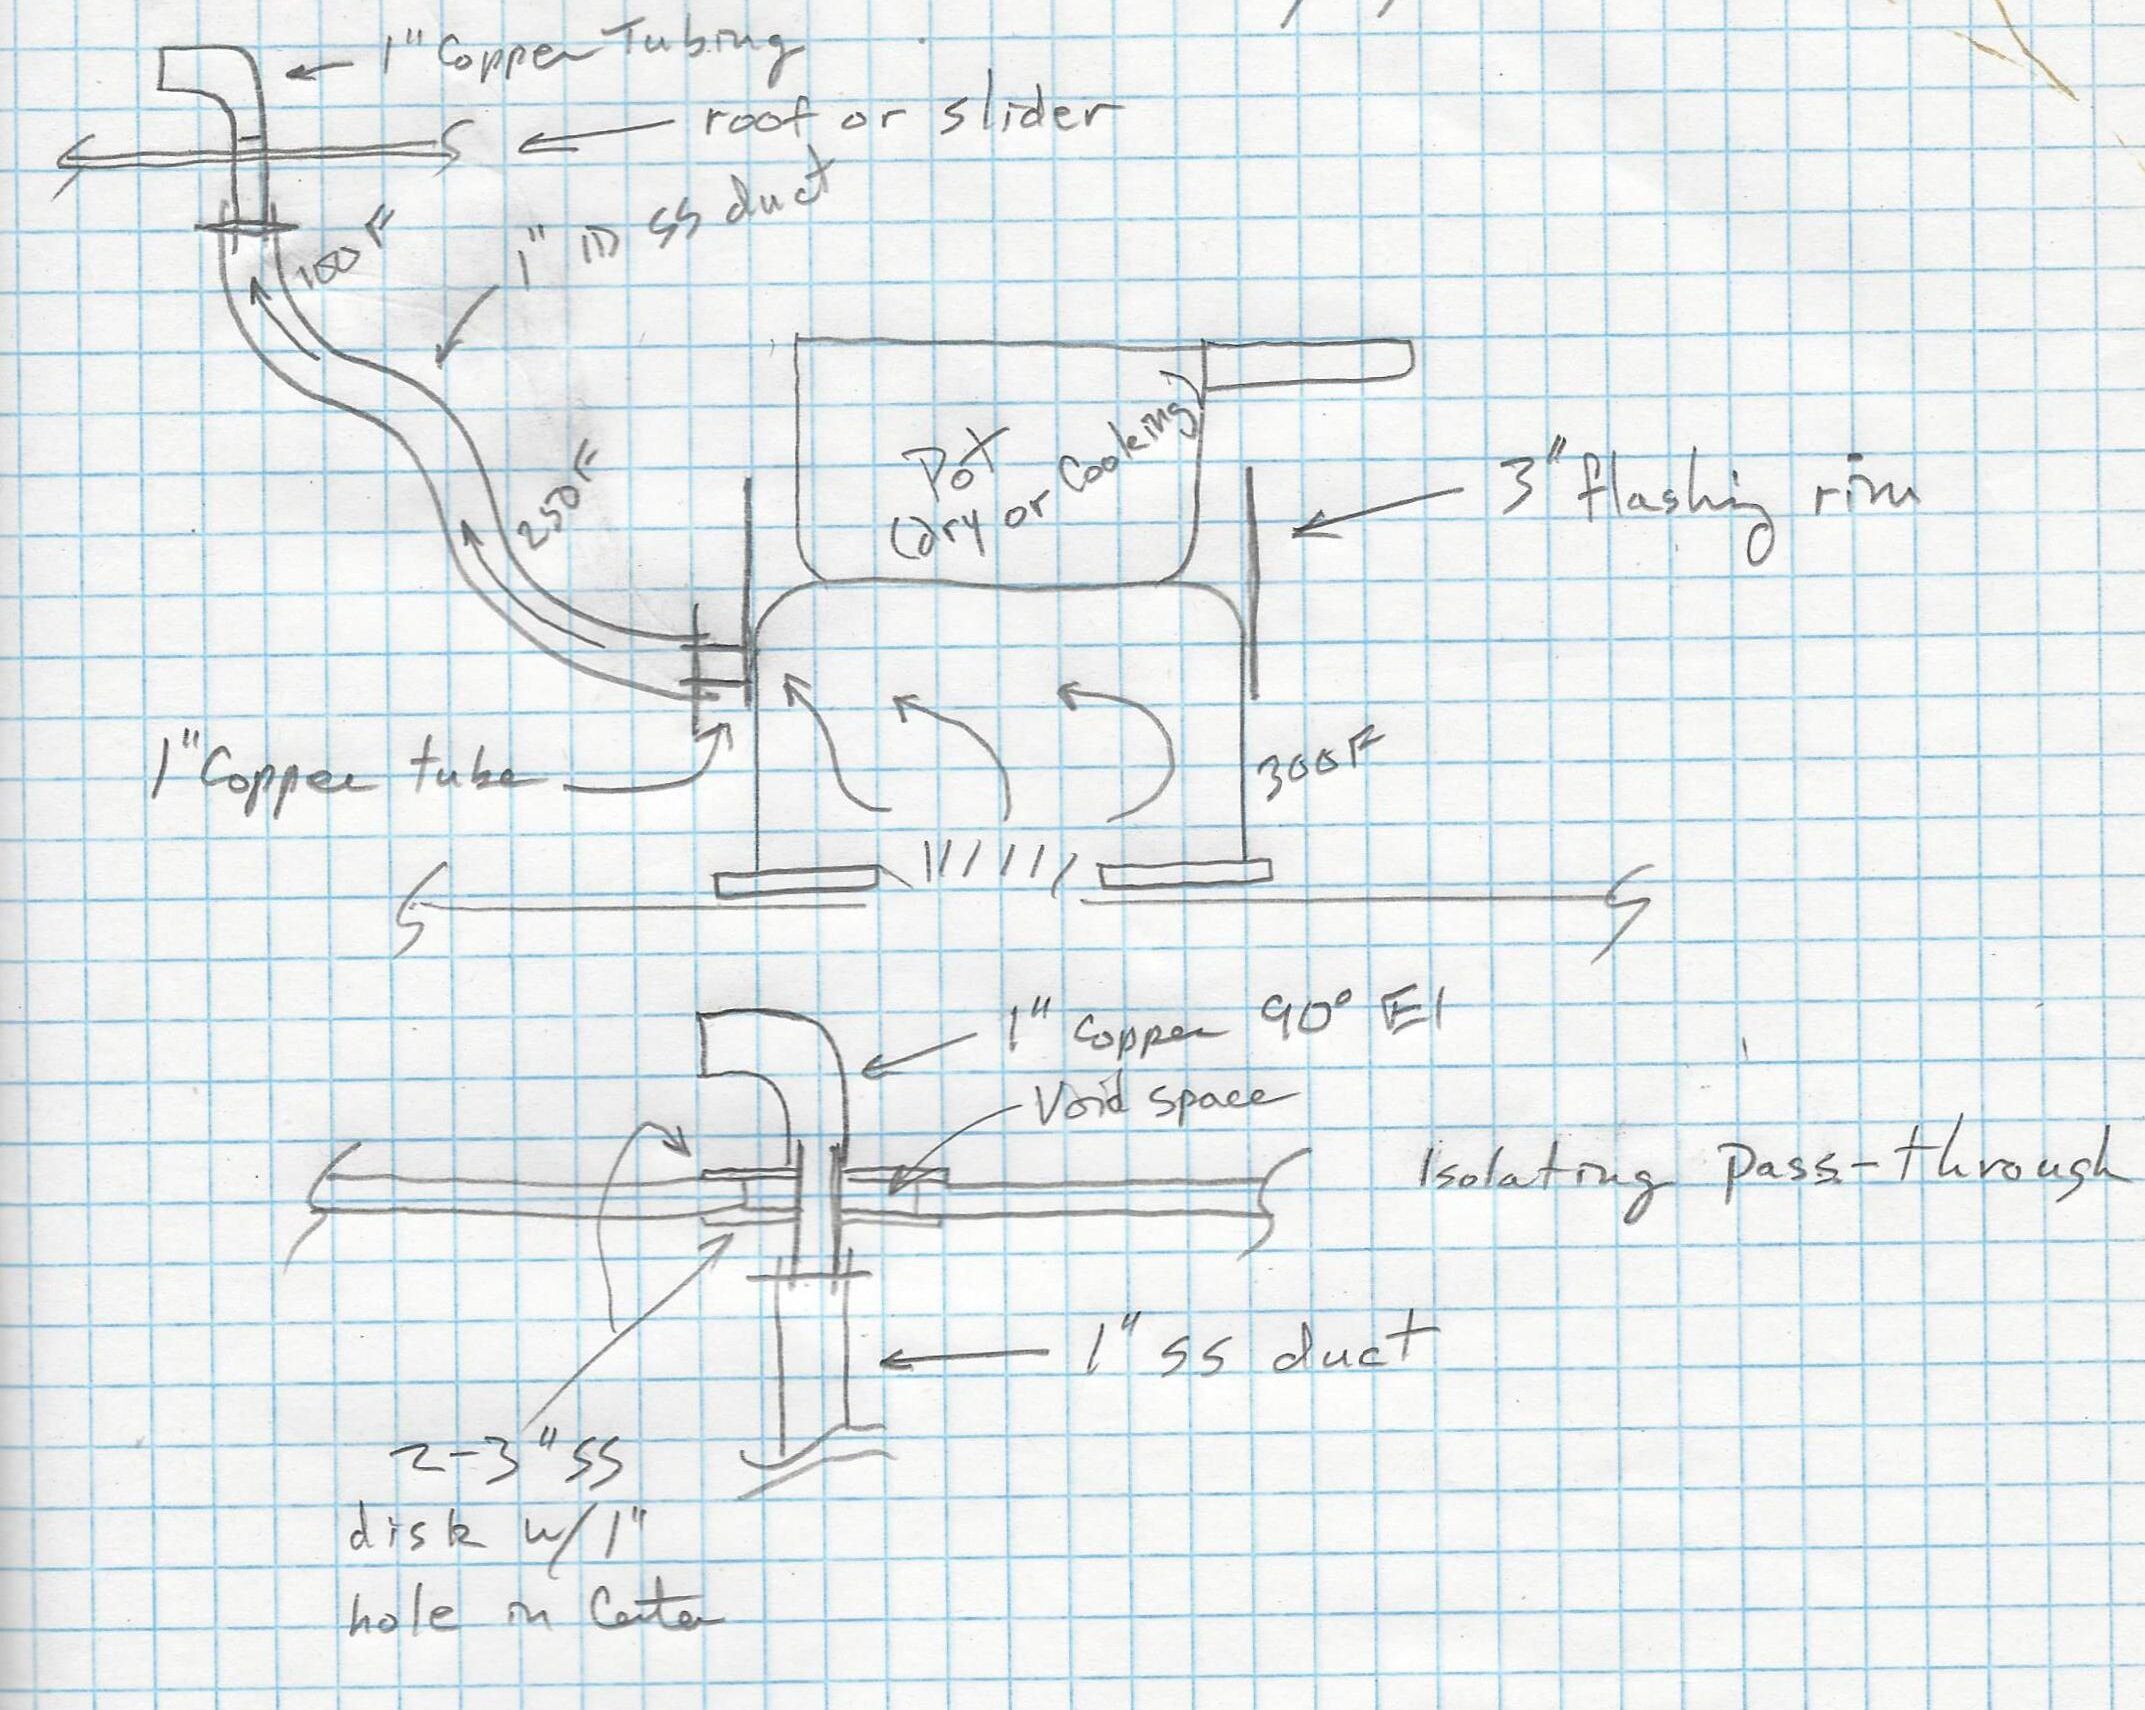 1" Copper Tubing
roof or slider
1" ID SS duct
100F
250F
Pot
(dry or cooking)
3" flashing rim
1" Copper tube
300F
1" copper 90° El
Void space
Isolating Pass-through
1" SS duct
2-3" SS
disk w/1"
hole in Center